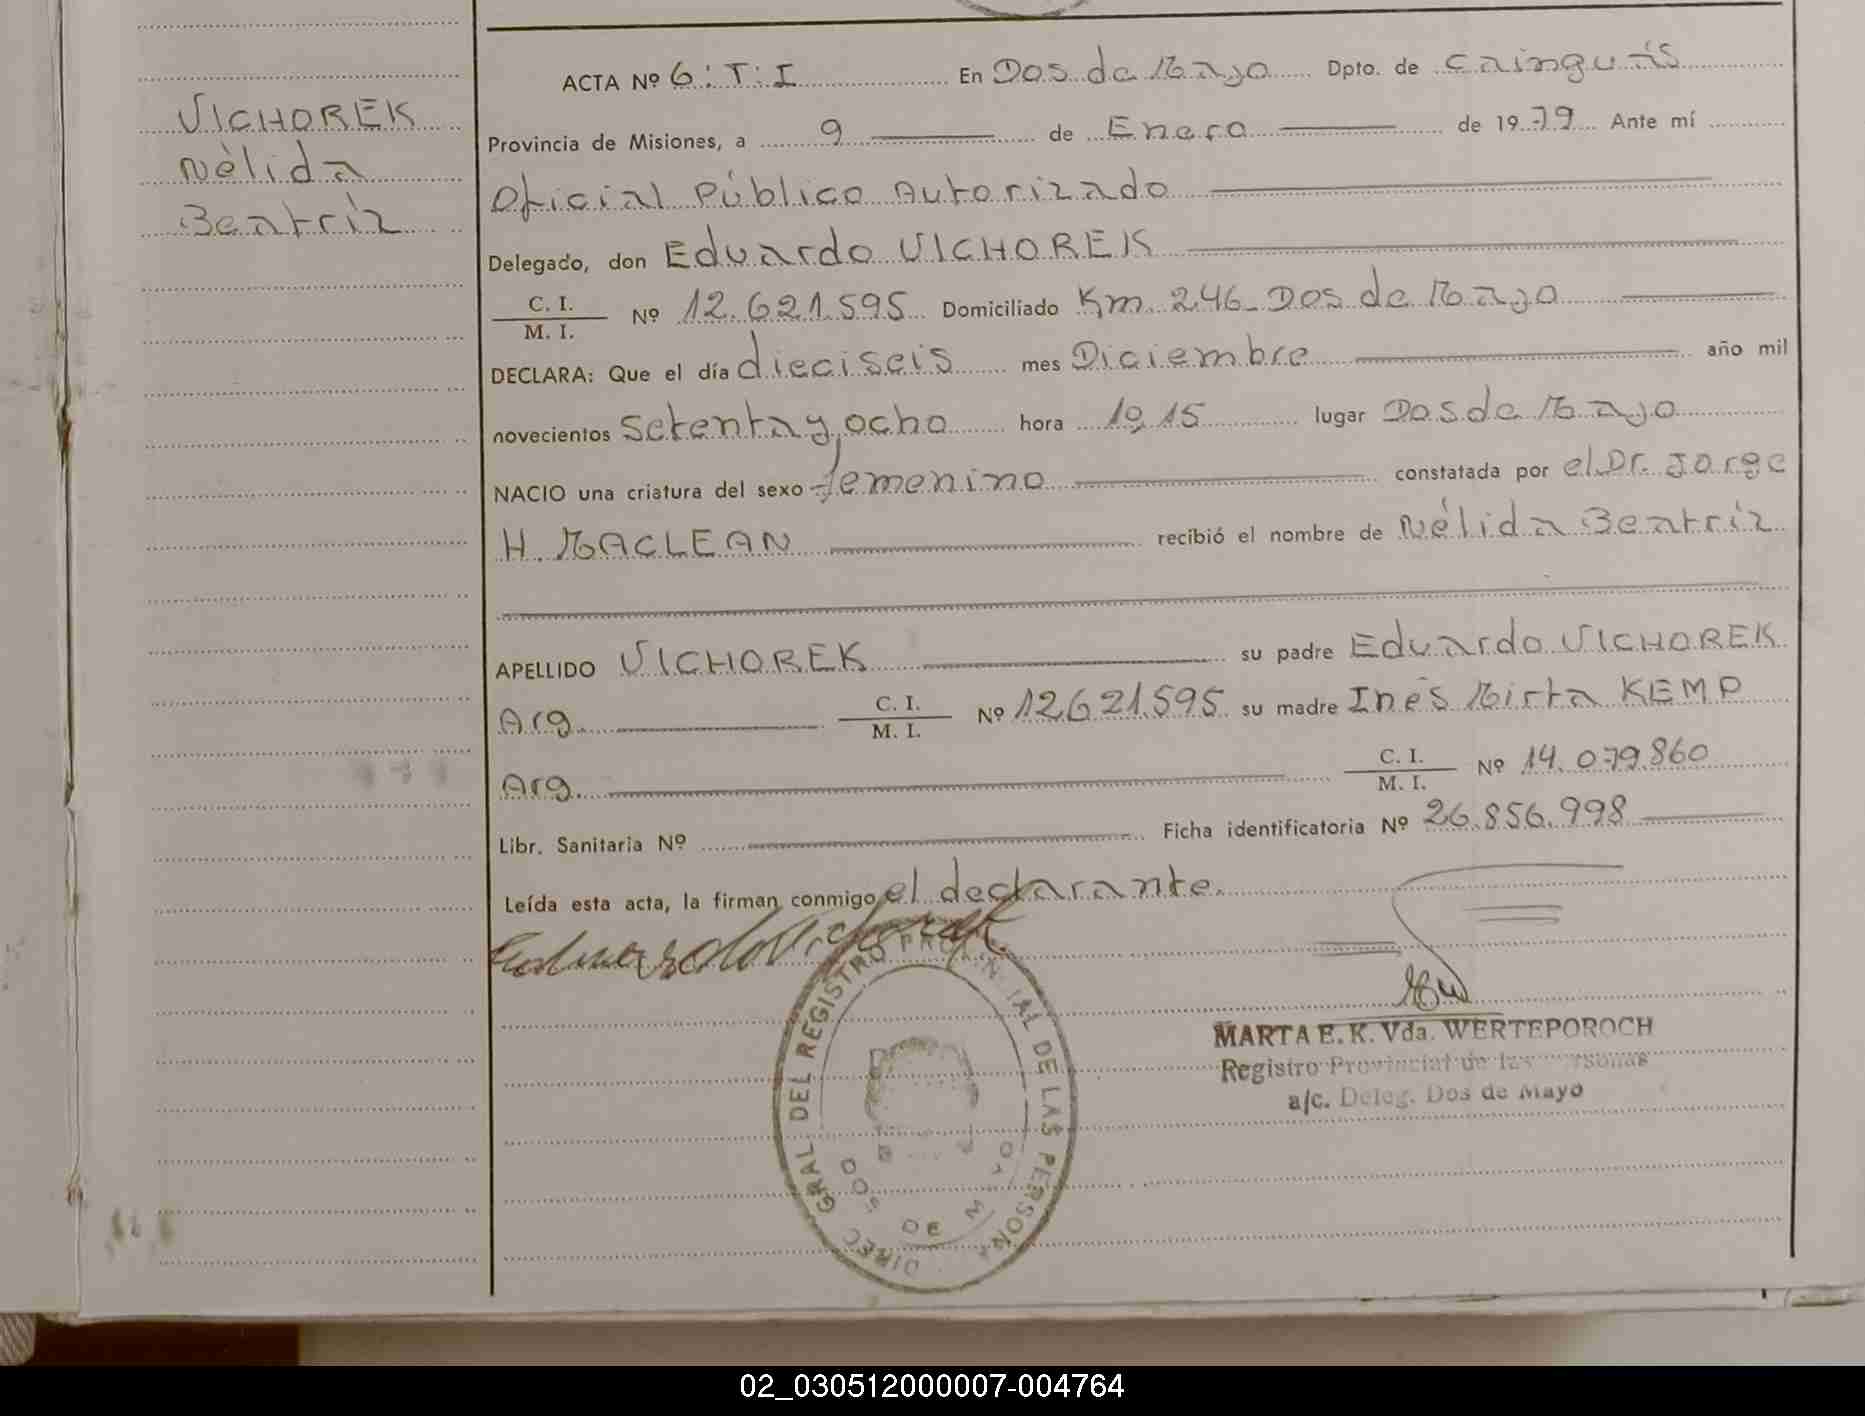 VICHOREK
Nélida
Beatríz
ACTA Nº 6:T:I En Dos de Mayo Dpto. de Cainguás
Provincia de Misiones, a 9 de Enero de 1979 Ante mí
Oficial Público Autorizado
Delegado, don Eduardo VICHOREK
C. I.
M. I.
Nº 12.621.595 Domiciliado Km. 246 Dos de Mayo
DECLARA: Que el día dieciseis mes Diciembre año mil
novecientos setenta y ocho hora 10,15 lugar Dos de Mayo
NACIO una criatura del sexo femenino constatada por el Dr. Jorge
H. MACLEAN recibió el nombre de Nélida Beatríz
APELLIDO VICHOREK su padre Eduardo VICHOREK
Arg. C. I.
M. I. Nº 12.621.595 su madre Inés Mirta KEMP
Arg. C. I.
M. I. Nº 14.079.860
Libr. Sanitaria Nº Ficha identificatoria Nº 26.856.998
Leída esta acta, la firman conmigo el declarante.
Eduardo Vichorek
DIREC GRAL DEL REGISTRO PROVINCIAL DE LAS PERSONA
DOS DE MAYO
MARTA E. K. Vda. WERTEPOROCH
Registro Provincial de las Personas
a/c. Deleg. Dos de Mayo
02_030512000007-004764